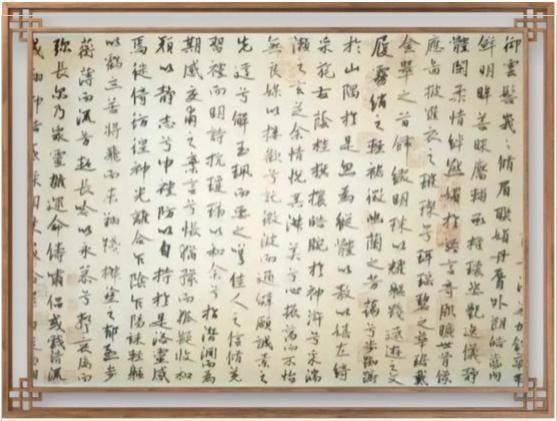 御雲髻峩〻脩眉聯娟丹脣外朗皓齒内
鮮明眸善睞靨輔承權瓌姿艷逸儀靜
體閑柔情綽態媚於語言奇服曠世骨像
應圖披羅衣之璀璨兮珥瑤碧之華琚戴
金翠之首飾綴明珠以耀軀踐遠遊之文
履霧綃之輕裾微幽蘭之芳藹兮步踟躕
於山隅於是忽焉縱體以敖以嬉左倚
采旄右蔭桂旗攘皓腕於神滸兮采湍
瀨之玄芝余情悅其淑美兮心振蕩而不怡
無良媒以接歡兮託微波而通辭願誠素之
先達兮解玉珮而要之嗟佳人之信脩羌
習禮而明詩抗瓊珶以和余兮指潛淵而為
期感交甫之棄言兮悵猶豫而狐疑收和
顏以靜志兮申禮防以自持於是洛靈感
焉徙倚彷徨神光離合乍陰乍陽竦輕軀
以鶴立若將飛而未翔踐椒塗之郁烈步
蘅薄而流芳超長吟以永慕兮聲哀厲而
彌長爾乃衆靈雜遝命儔嘯侶或戲清流